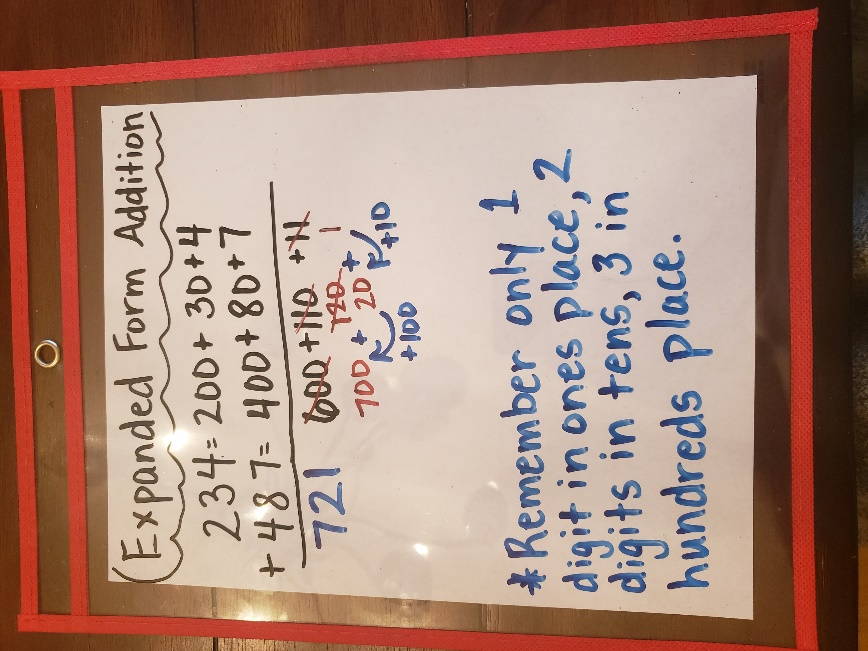 Expanded Form Addition
234 = 200 + 30 + 4
+ 487 = 400 + 80 + 7
721 600 + 110 + 11
120
700 + 20 + 1
+100 +10
*Remember only 1
digit in ones place, 2
digits in tens, 3 in
hundreds place.